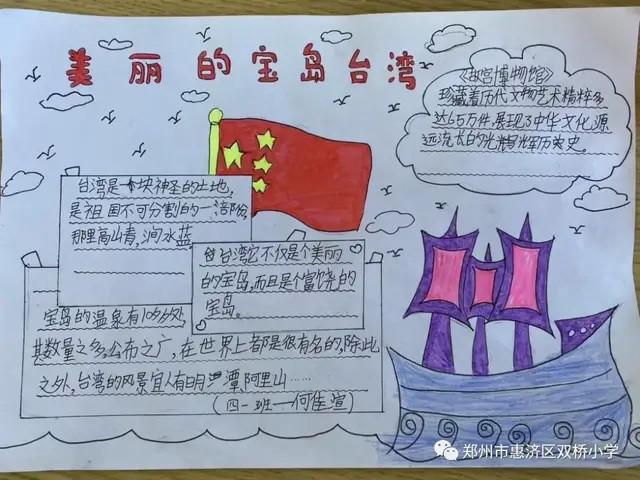 美丽的宝岛台湾
《故宫博物馆》
珍藏着历代文物艺术精粹多
达65万件,展现了中华文化源
远流长的光辉历史。
台湾是一块神圣的土地,
是祖国不可分割的一部份,
那里高山青,涧水蓝。
台湾它不仅是个美丽
的宝岛,而且是个富饶的
宝岛。
宝岛的温泉有10多处,
其数量之多,公布之广,在世界上都是很有名的,除此
之外,台湾的风景宜人有日月潭阿里山……
(四一班——何佳萱)
郑州市惠济区双桥小学